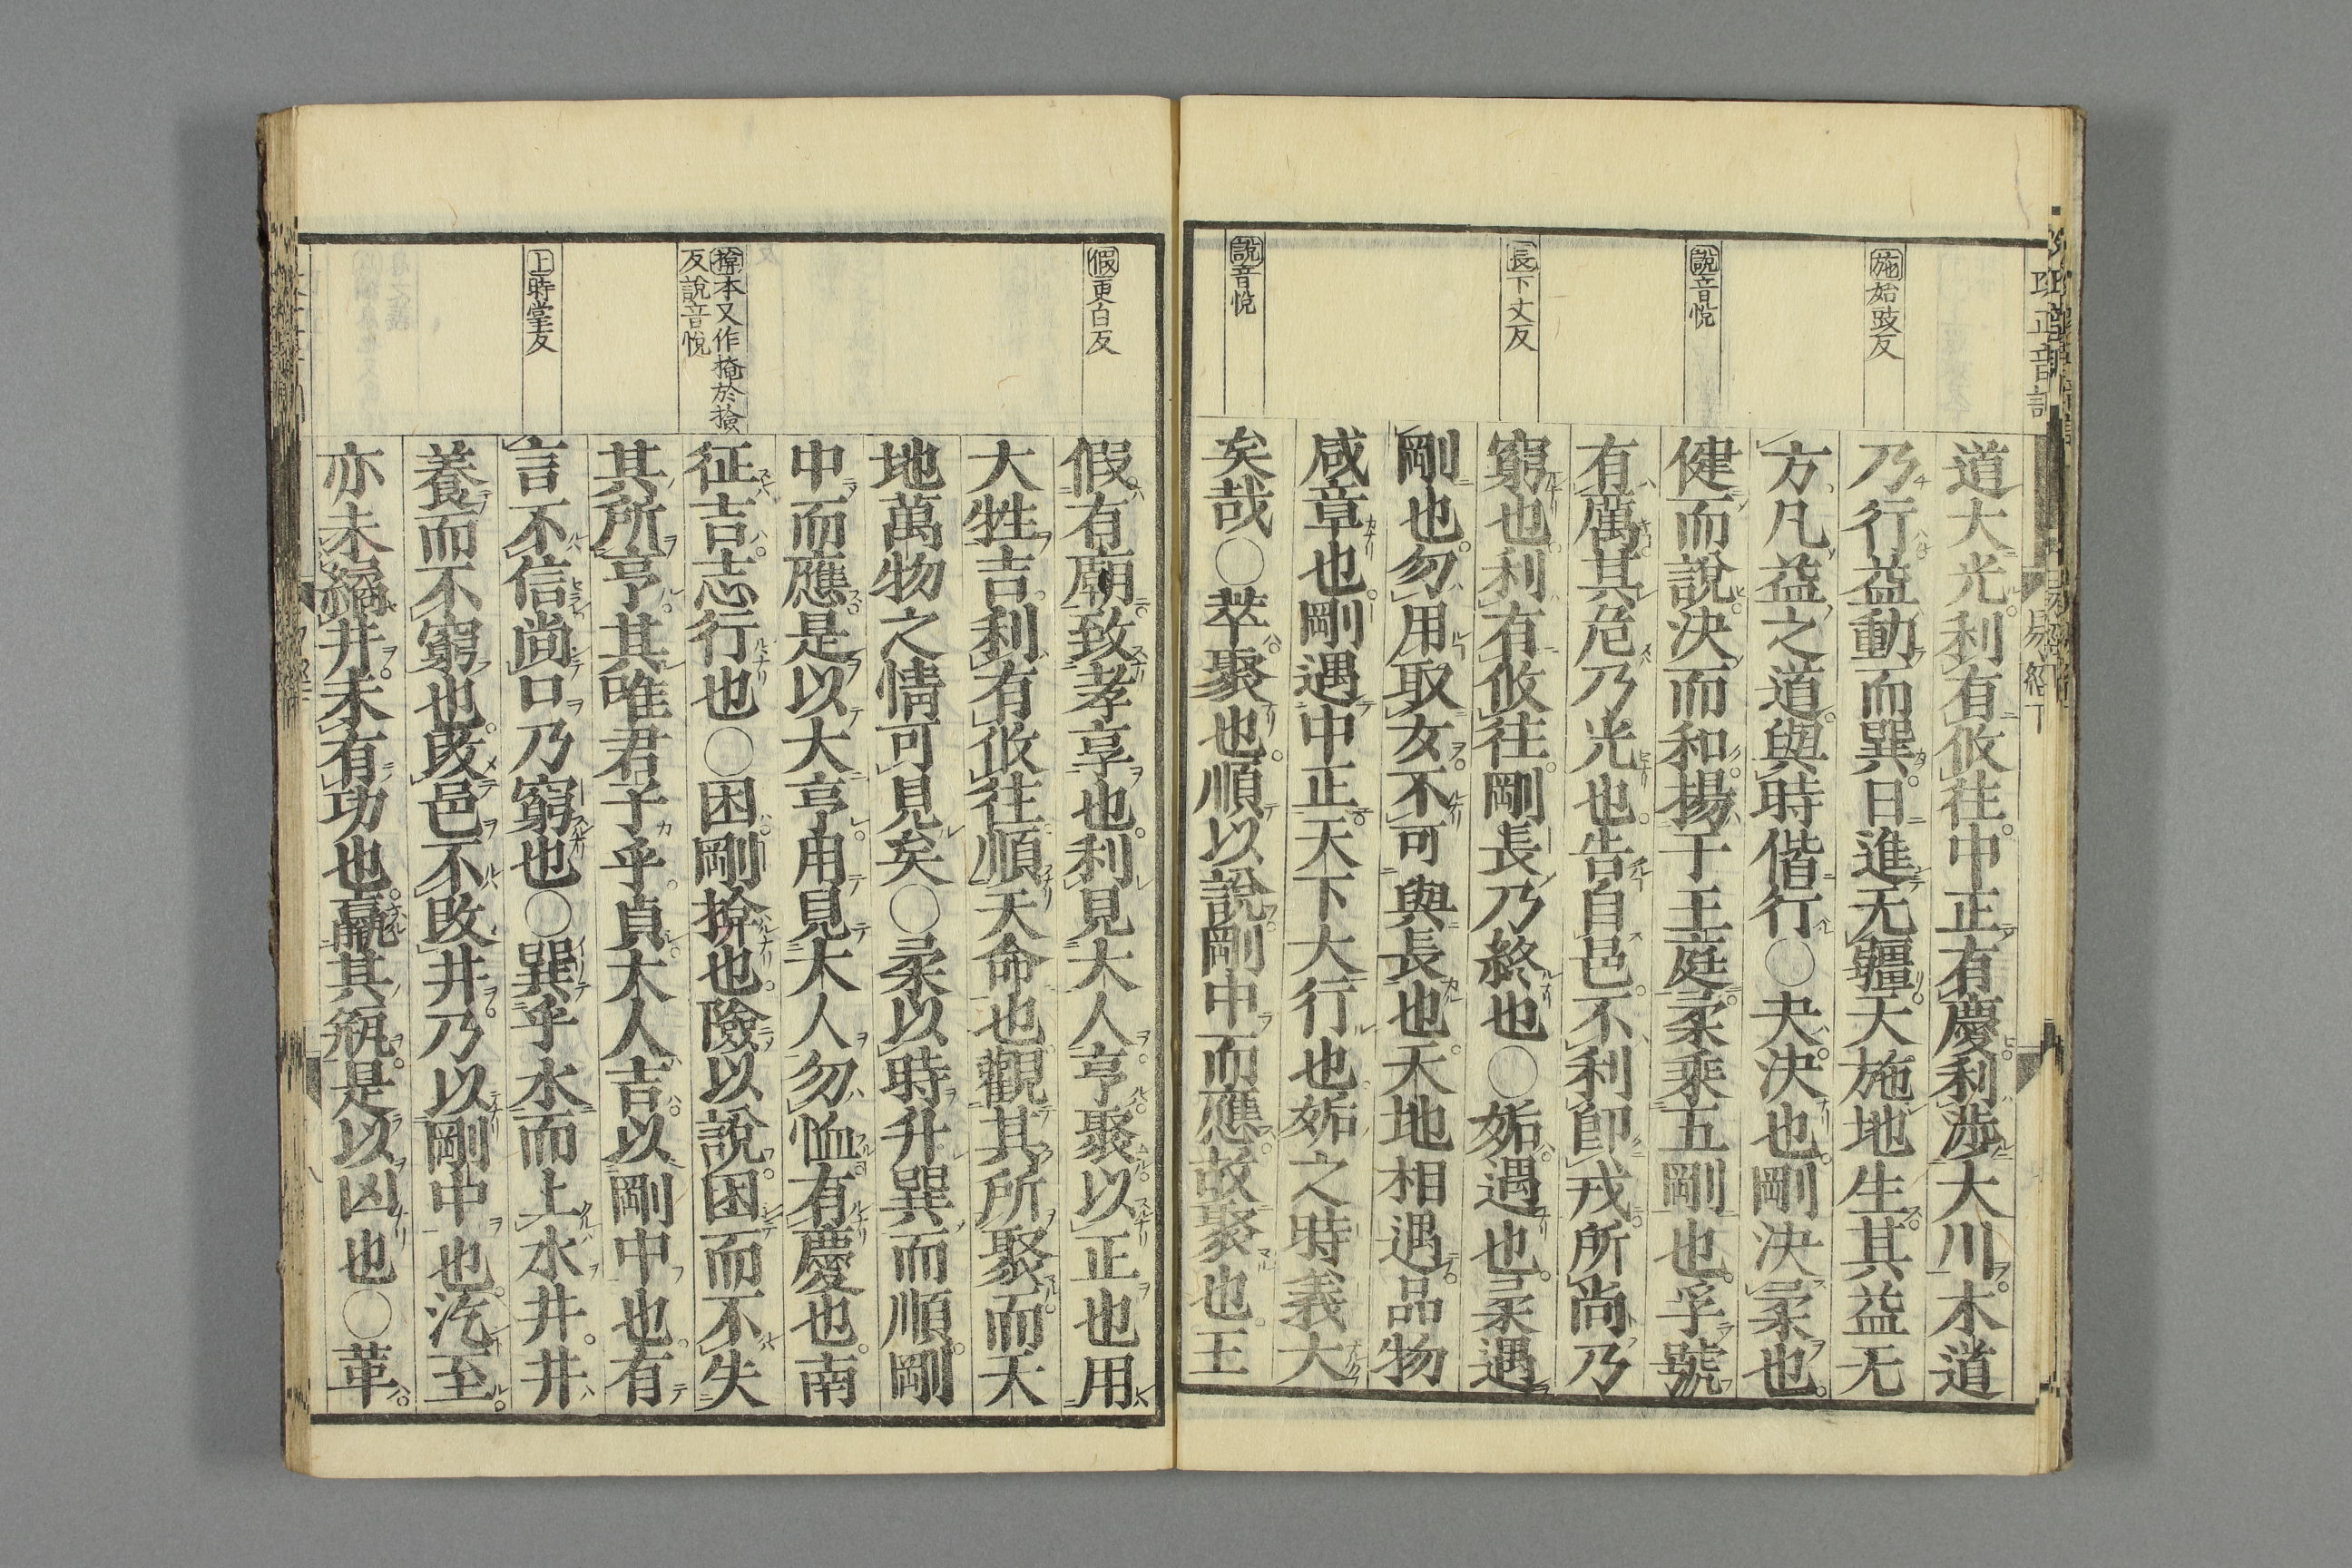 施始豉反
說音悅
長下丈反
說音悅
道大光利有攸往中正有慶利涉大川木道
乃行益動而巽日進无疆天施地生其益无
方凡益之道與時偕行○夬決也剛決柔也
健而說決而和揚于王庭柔乘五剛也孚號
有厲其危乃光也告自邑不利卽戎所尙乃
窮也利有攸往剛長乃終也○姤遇也柔遇
剛也勿用取女不可與長也天地相遇品物
咸章也剛遇中正天下大行也姤之時義大
矣哉○萃聚也順以說剛中而應故聚也王
假更白反
揜本又作掩於撿
反說音悅
上時掌反
假有廟致孝享也利見大人亨聚以正也用
大牲吉利有攸往順天命也觀其所聚而天
地萬物之情可見矣○柔以時升巽而順剛
中而應是以大亨用見大人勿恤有慶也南
征吉志行也○困剛揜也險以說困而不失
其所亨其唯君子乎貞大人吉以剛中也有
言不信尙口乃窮也○巽乎水而上水井井
養而不窮也改邑不改井乃以剛中也汔至
亦未繘井未有功也羸其瓶是以凶也○革